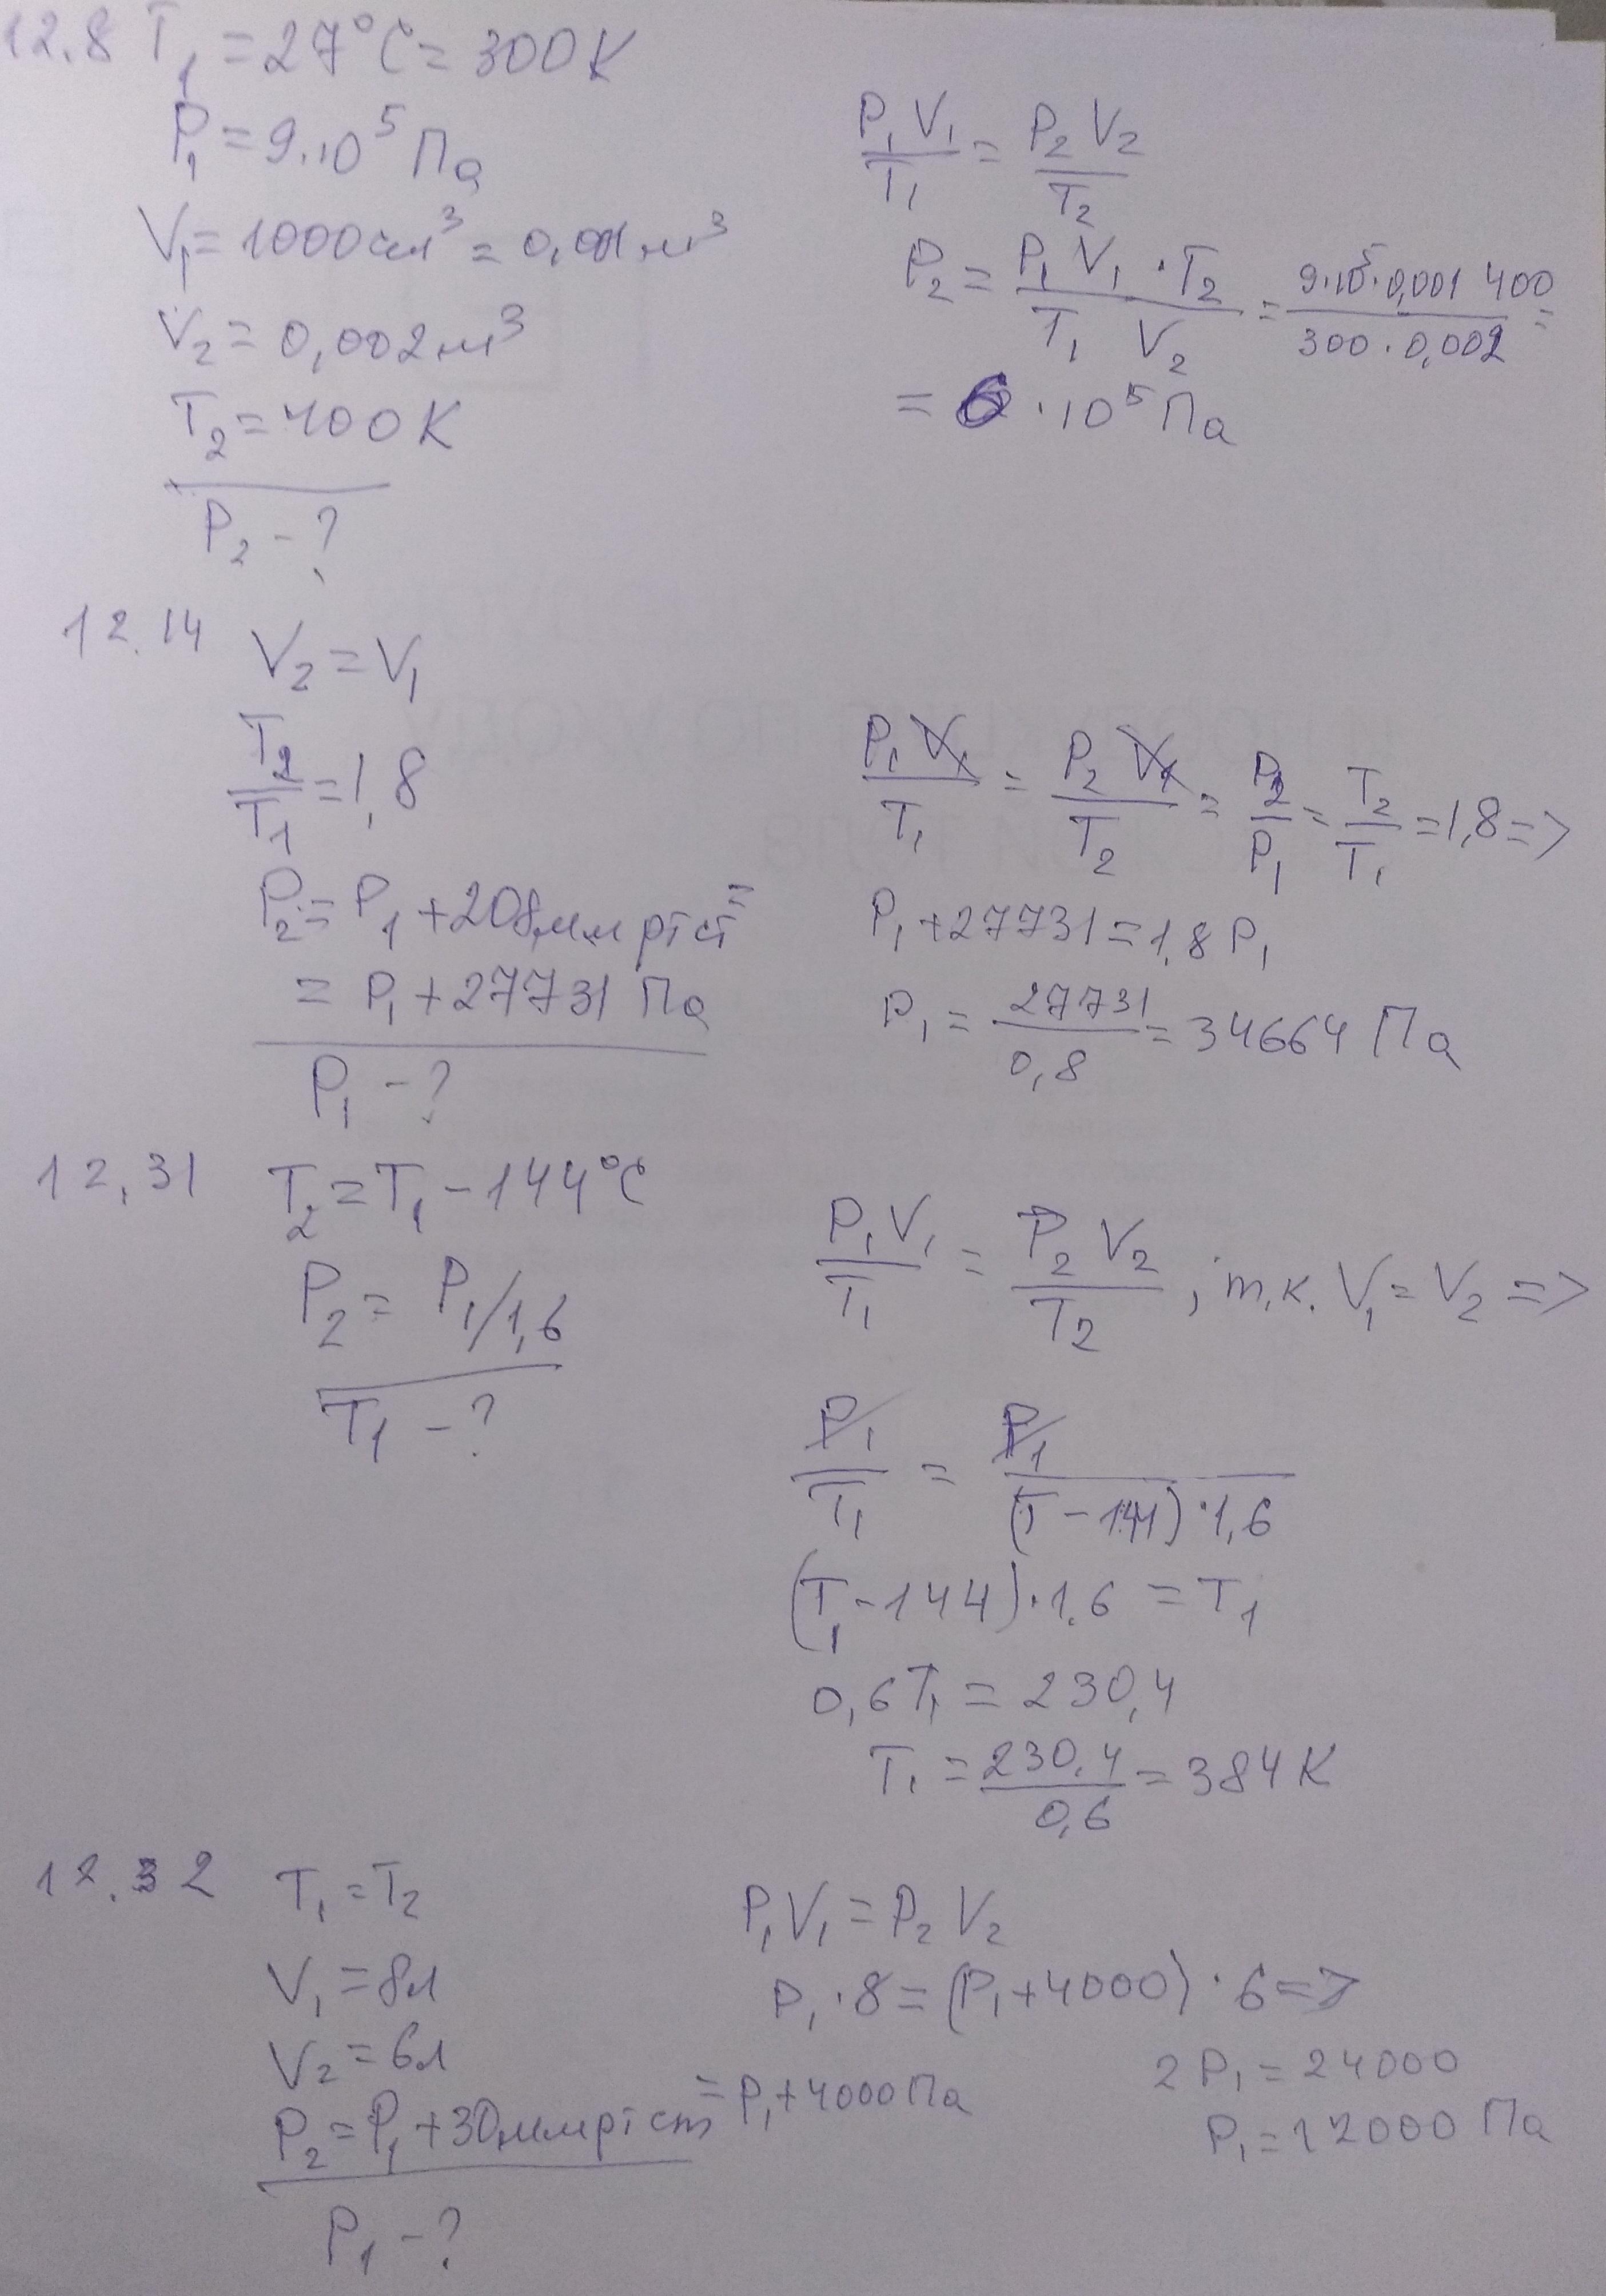 12.8 T₁ = 27°C = 300K
P₁ = 9·10⁵ Па
V₁ = 1000см³ = 0,001м³
V₂ = 0,002м³
T₂ = 400K
P₂ - ?
P₁V₁/T₁ = P₂V₂/T₂
P₂ = P₁V₁·T₂/T₁V₂ = 9·10⁵·0,001 400/300·0,002 =
= 6·10⁵ Па
12.14 V₂ = V₁
T₂/T₁ = 1,8
P₂ = P₁ + 208мм рт ст =
= P₁ + 27731 Па
P₁ - ?
P₁V₁/T₁ = P₂V₁/T₂ = P₂/P₁ = T₂/T₁ = 1,8 =>
P₁ + 27731 = 1,8 P₁
P₁ = 27731/0,8 = 34664 Па
12,31 T₂ = T₁ - 144°C
P₂ = P₁/1,6
T₁ - ?
P₁V₁/T₁ = P₂V₂/T₂, т.к. V₁ = V₂ =>
P₁/T₁ = P₁/(T - 144)·1,6
(T₁ - 144)·1.6 = T₁
0,6T₁ = 230,4
T₁ = 230,4/0,6 = 384K
12.32 T₁ = T₂
V₁ = 8л
V₂ = 6л
P₂ = P₁ + 30ммрт ст = P₁ + 4000 Па
P₁ - ?
P₁V₁ = P₂V₂
P₁·8 = (P₁ + 4000)·6 =>
2P₁ = 24000
P₁ = 12000 Па